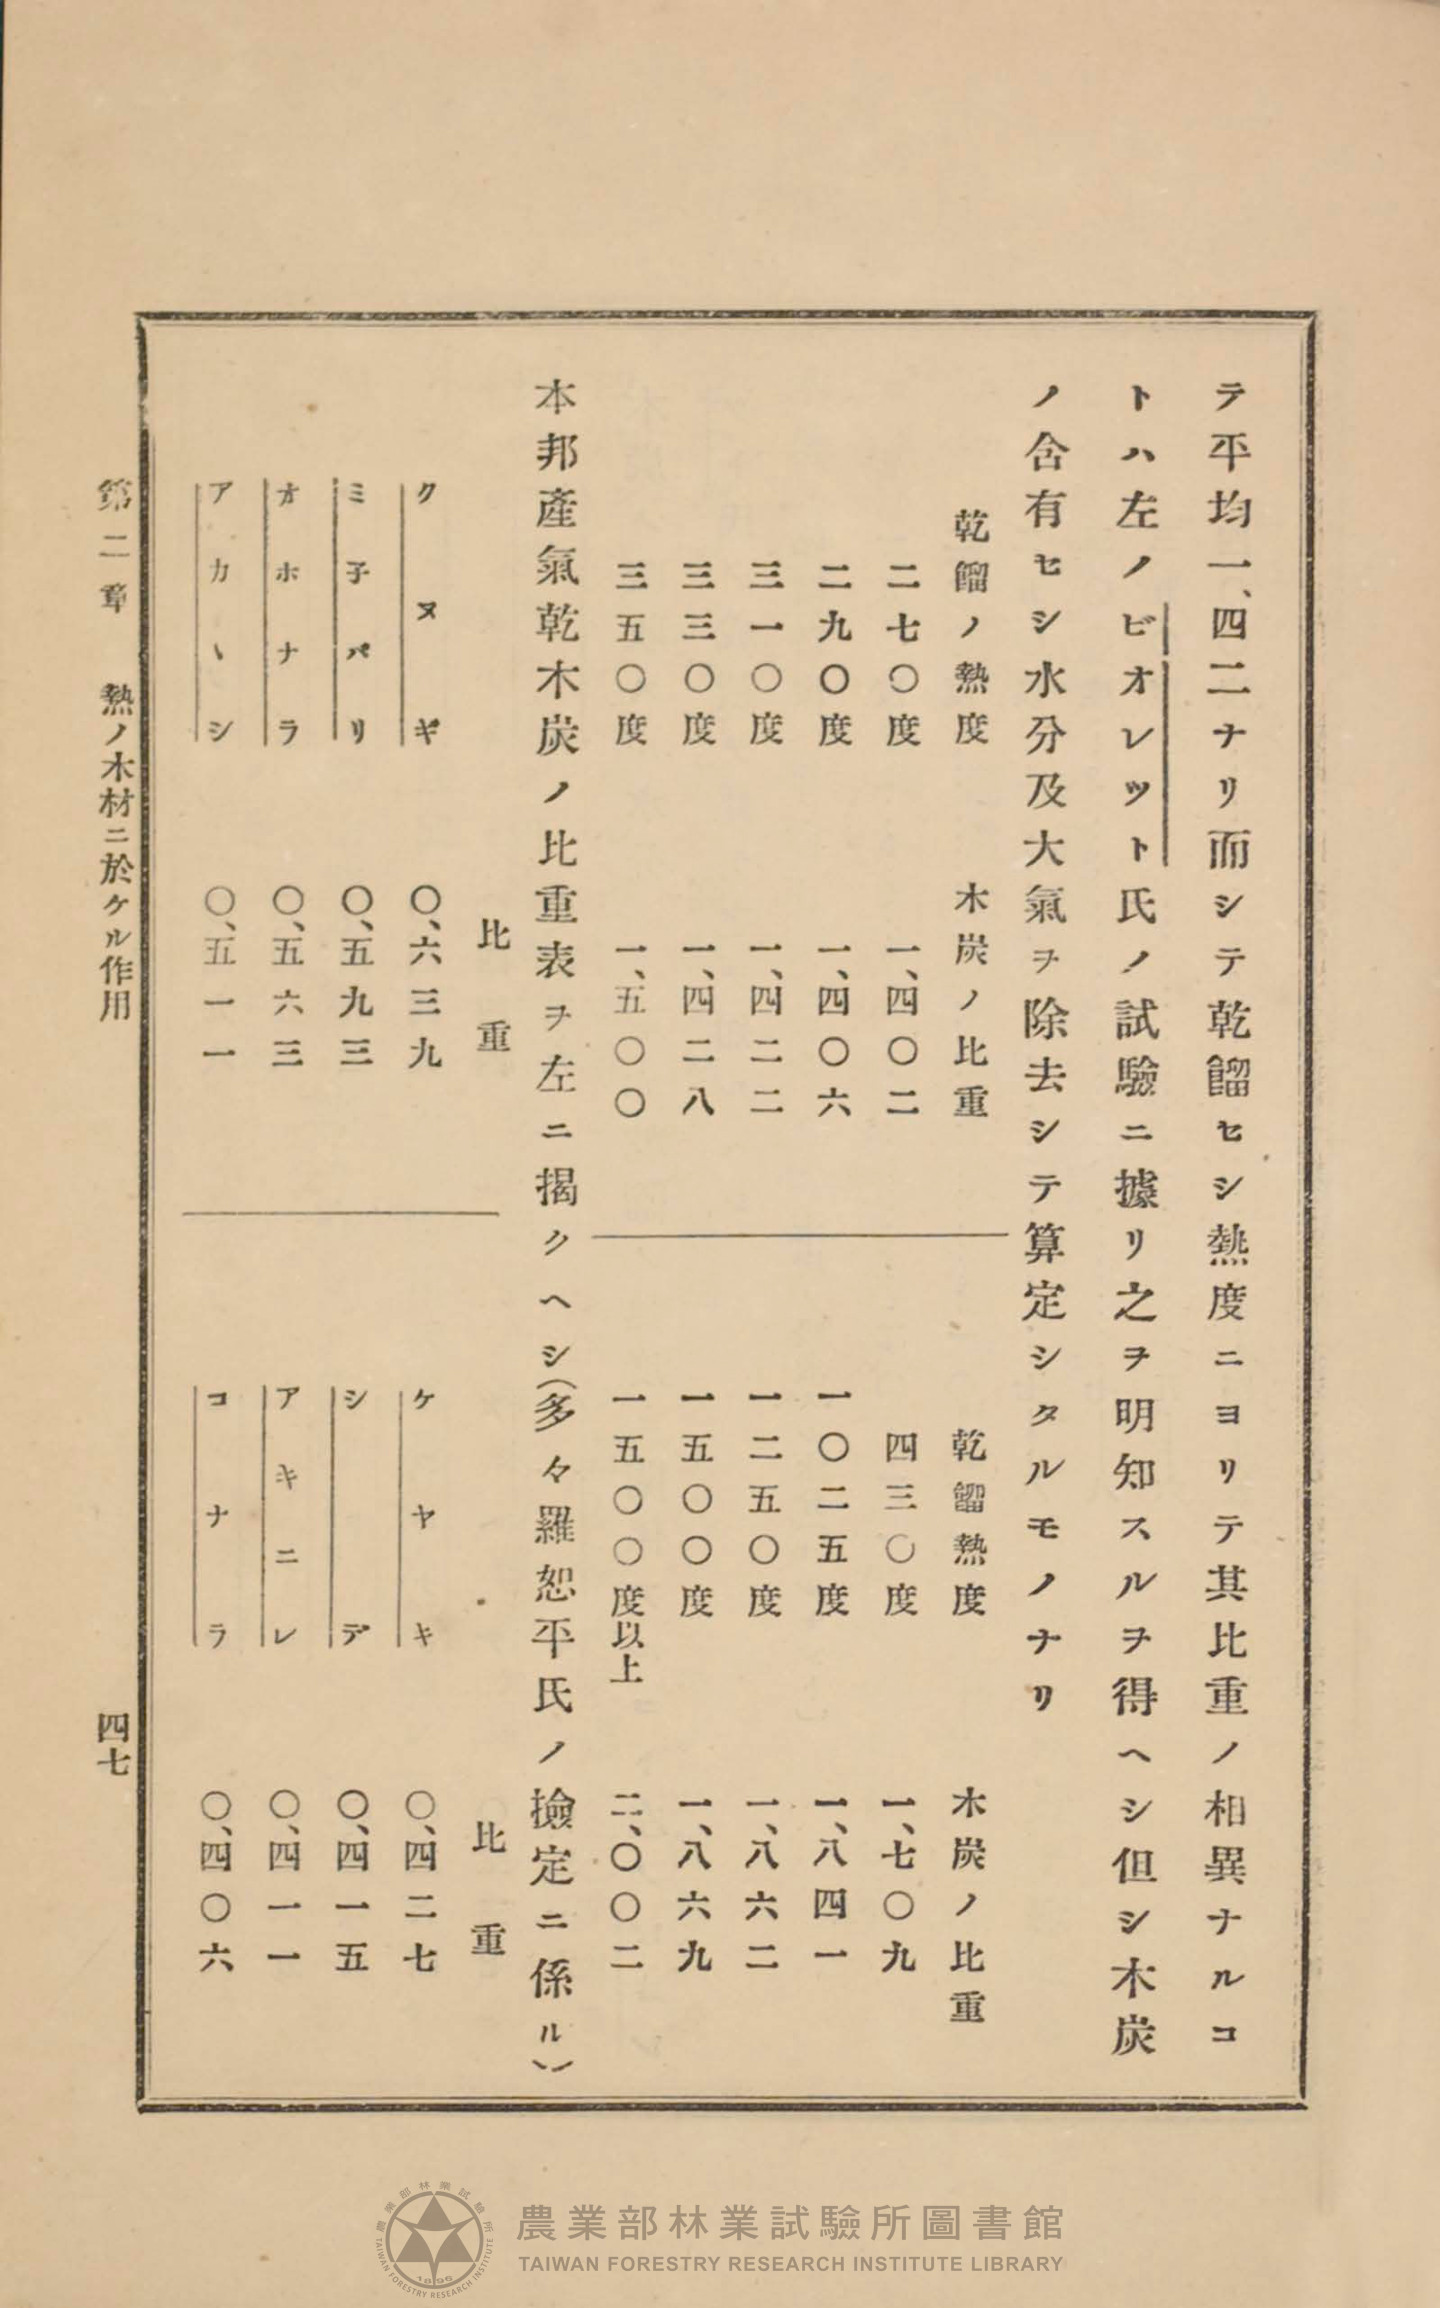 テ平均一、四二ナリ而シテ乾餾セシ熱度ニヨリテ其比重ノ相異ナルコ
トハ左ノビオレツト氏ノ試驗ニ據リ之ヲ明知スルヲ得ヘシ但シ木炭
ノ含有セシ水分及大氣ヲ除去シテ算定シタルモノナリ
乾餾ノ熱度 木炭ノ比重 乾餾熱度 木炭ノ比重
二七〇度 一、四〇二 四三〇度 一、七〇九
二九〇度 一、四〇六 一〇二五度 一、八四一
三一〇度 一、四二二 一二五〇度 一、八六二
三三〇度 一、四二八 一五〇〇度 一、八六九
三五〇度 一、五〇〇 一五〇〇度以上 二、〇〇二
本邦產氣乾木炭ノ比重表ヲ左ニ揭クヘシ(多々羅恕平氏ノ撿定ニ係ル)
比重 比重
クヌギ 〇、六三九 ケヤキ 〇、四二七
ミ子バリ 〇、五九三 シデ 〇、四一五
オホナラ 〇、五六三 アキニレ 〇、四一一
アカヽシ 〇、五一一 コナラ 〇、四〇六
第二章 熱ノ木材ニ於ケル作用 四七
農業部林業試驗所圖書館
TAIWAN FORESTRY RESEARCH INSTITUTE LIBRARY
農業部林業試驗所
TAIWAN FORESTRY RESEARCH INSTITUTE
1896